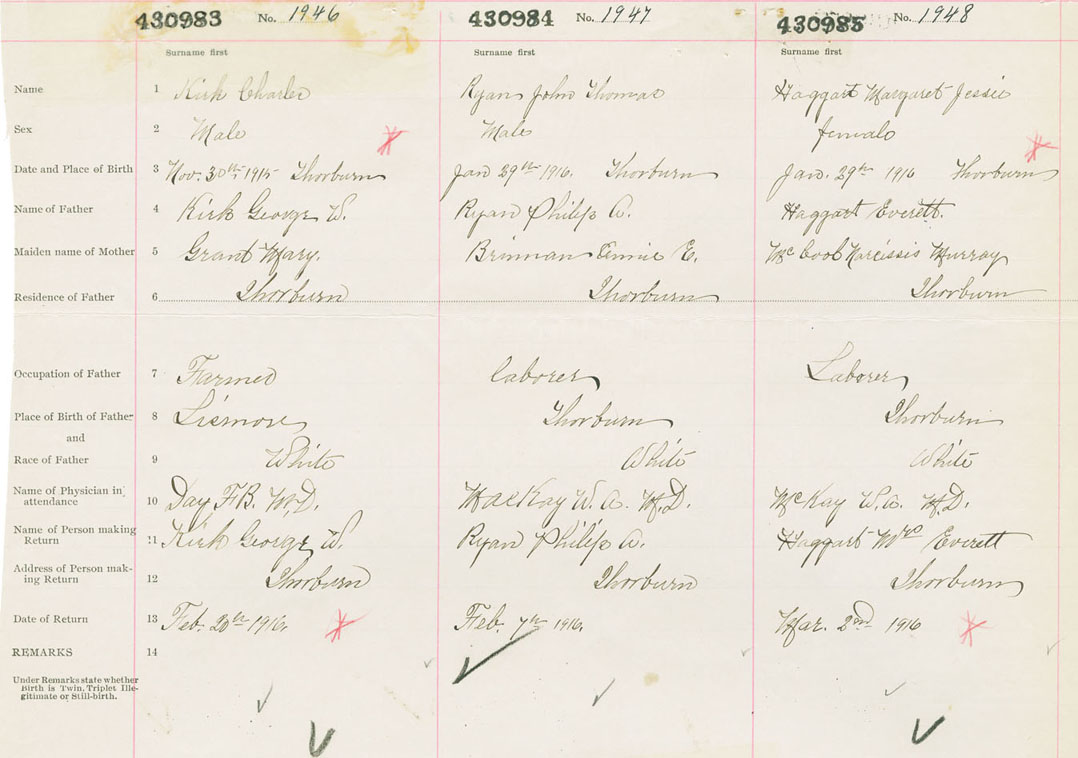 430983 No. 1946 430984 No. 1947 430985 No. 1948
Surname first Surname first Surname first
Name 1 Kirk Charles Ryan John Thomas Haggart Margaret Jessie
Sex 2 Male Male female
Date and Place of Birth 3 Nov. 30th 1915 Thorburn Jan 29th 1916. Thorburn Jan. 29th 1916 Thorburn
Name of Father 4 Kirk George W. Ryan Philip A. Haggart Everett.
Maiden name of Mother 5 Grant Mary. Brinnan Annie E. McCool Narcissis Murray
Residence of Father 6 Thorburn Thorburn Thorburn
Occupation of Father 7 Farmer laborer Laborer
Place of Birth of Father 8 Lismore Thorburn Thorburn
and
Race of Father 9 White White White
Name of Physician in attendance 10 Day F.B. M.D. MacKay W. A. M.D. McKay W. A. M.D.
Name of Person making Return 11 Kirk George W. Ryan Philip A. Haggart Mrs Everett
Address of Person mak-
ing Return 12 Thorburn Thorburn Thorburn
Date of Return 13 Feb. 20th 1916. Feb. 7th 1916. Mar. 2nd 1916
REMARKS 14
Under Remarks state whether
Birth is Twin, Triplet Ille-
gitimate or Still-birth.